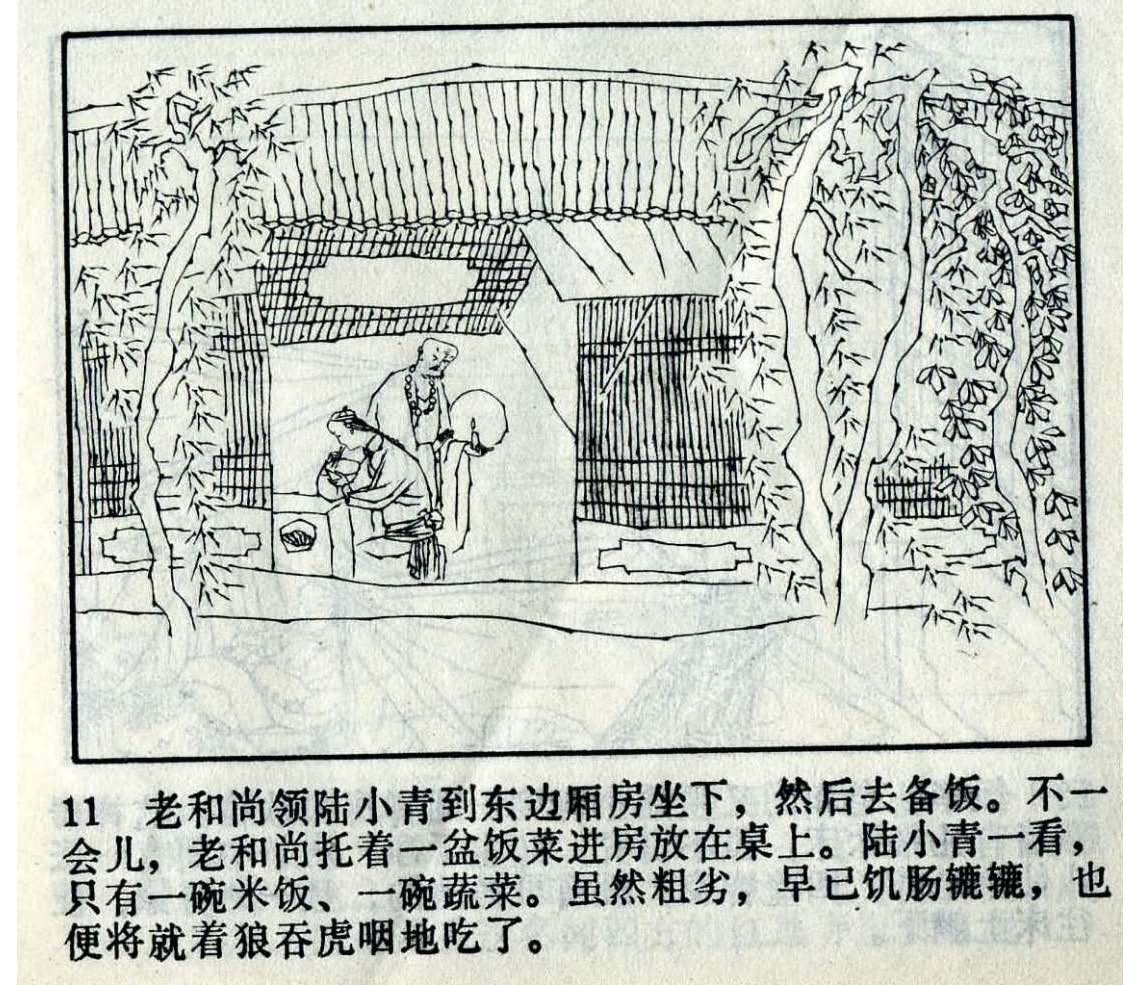 11 老和尚领陆小青到东边厢房坐下，然后去备饭。不一
会儿，老和尚托着一盆饭菜进房放在桌上。陆小青一看，
只有一碗米饭、一碗蔬菜。虽然粗劣，早已饥肠辘辘，也
便将就着狼吞虎咽地吃了。